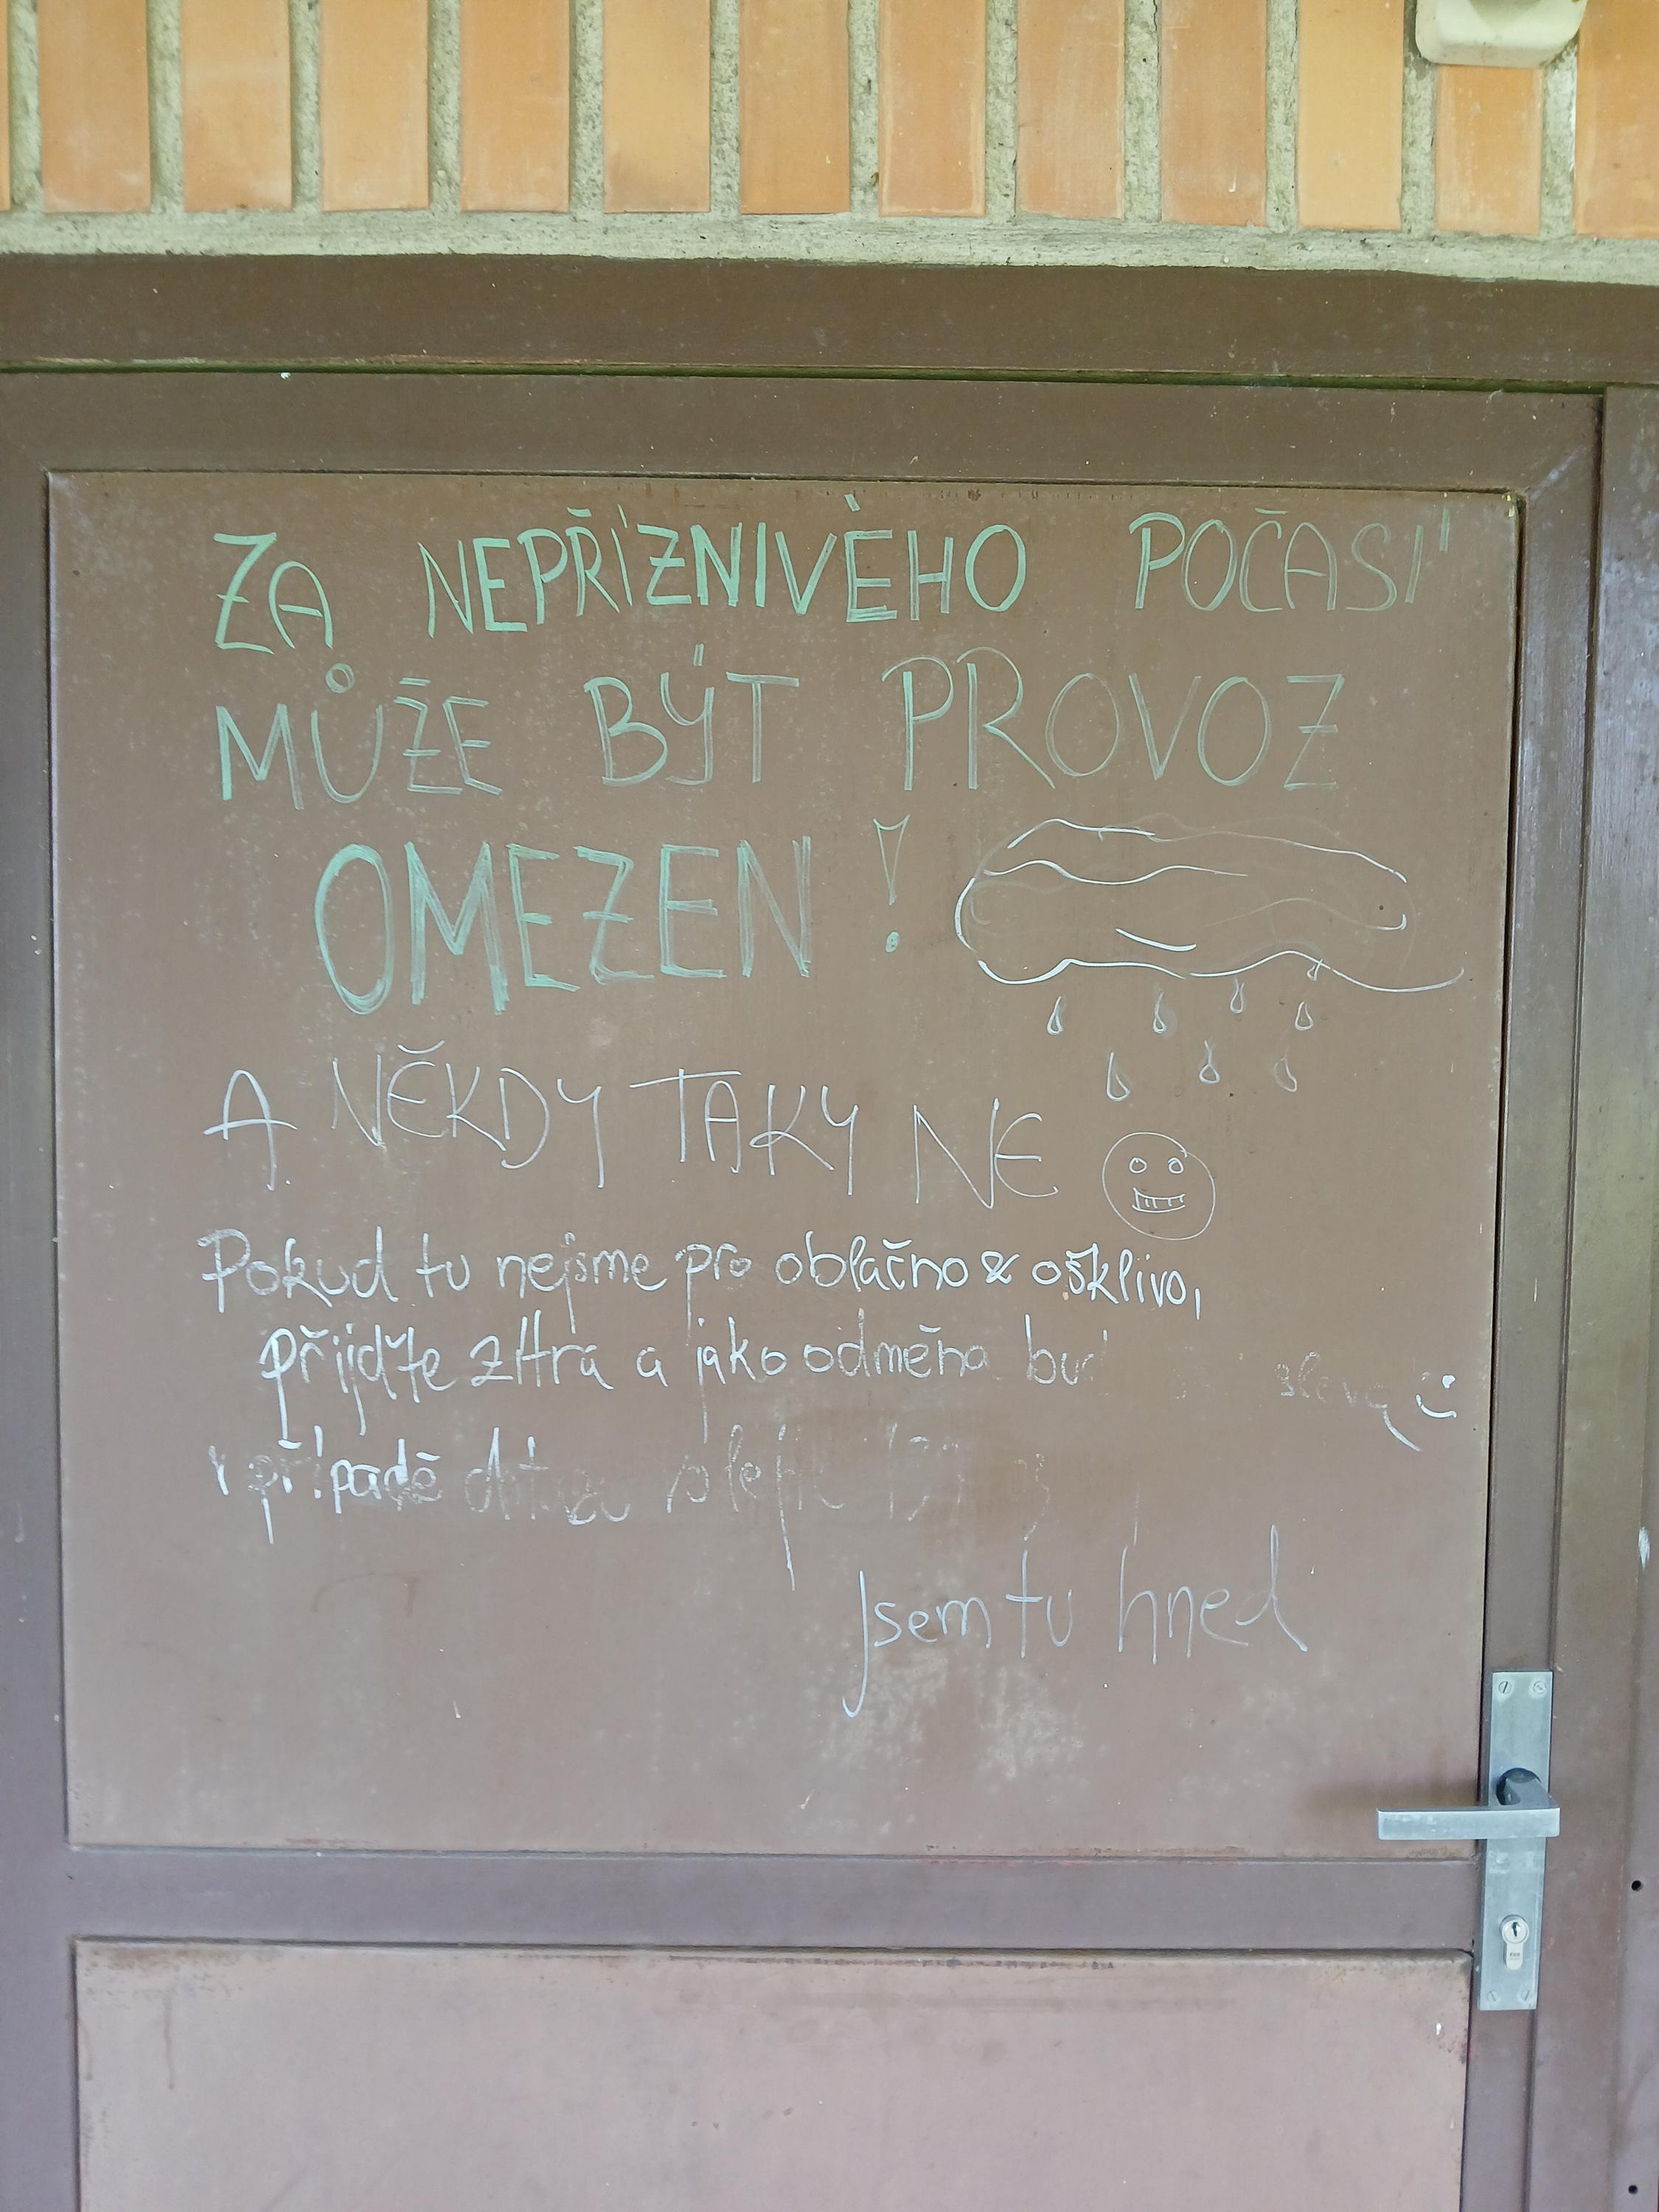 ZA NEPŘÍZNIVÉHO POČASÍ
MŮŽE BÝT PROVOZ
OMEZEN!
A NĚKDY TAKY NE
Pokud tu nejsme pro oblačno & ošklivo,
přijďte zítra a jako odměna slevy :)
v případě dotazu volejte
Jsem tu hned